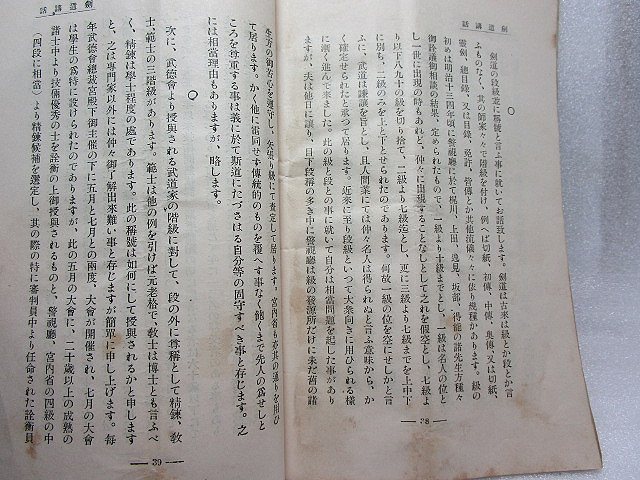 劍道講話
○
劍道の段級並に稱號と言ふ事に就いてお話致します。劍道は古來は級とか段とか言
ふものなく、其の師家々々で階級を付け、例へば切紙、初傳、中傳、奥傳、又は切紙、
靈劍、總目錄、又は目錄、免許、皆傳とか其他流儀々々に依り幾種があります。級の
初めは明治十三四年頃に警視廳に於て梶川、上田、逸見、坂部、得能の諸先生方種々
御詮議御相談の結果、定められたもので、一級より十級までとし、一級は名人の位と
し一世に出現の時もあれど、仲々に出現することなしとして之れを假空とし、七級よ
り以下八九十の級を切り捨て、二級より七級迄とし、更に三級より七級までを上中下
に別ち、二級のみを上と下とせられたのであります。何故一級の位を空にせしかと言
ふに、武道は謙讓を旨とし、且人間業にては仲々名人は得られぬと言ふ意味から、か
く確定せられたと承つて居ります。近來に至り段級といつて大衆向きに用ひられる樣
に漸く進んで來ました。此の級と段との事に就いて自分は相當問題を起した事があり
ますが、夫は他日に讓り、目下段稱の多き中に警視廳は級の發源所だけに未だ舊の諸
— 38 —
劍道講話
生方の御苦心を遵守し、矢張り級にて査定して居ります。宮内省も亦其の通りを用ひ
て居ります。かく他に雷同せず傳統的のものを覆へす事なく飽くまで先人の爲せしと
ころを尊重する事は義に於て斯道にたづさはる自分等の固守すべき事と存じます。之
には相當理由もありますが、略します。
○
次に、武德會より授與される武道家の階級に對して、段の外に尊稱として精鍊、敎
士、範士の三階級があります。範士は他の例を引けば元老格で、敎士は博士とも言ふべ
く、精鍊は學士程度の處であります。此の稱號は如何にして授與されるかと申します
と、之は專門家以外には仲々御了解出來難い事と存じますが簡單に申し上げます。每
年武德會總裁宮殿下御主催の下に五月と七月との兩度、大會が開催され、七月の大會
は學生の爲特に設けられたのでありますが、此の五月の大會に、二十歲以上の成熟の
諸士中より技倆優秀の士を詮衡の上御授與されるものと、警視廳、宮内省の四級の中
(四段に相當)より精鍊候補を選定し、其の際の特に審判員中より任命された詮衡員
— 39 —